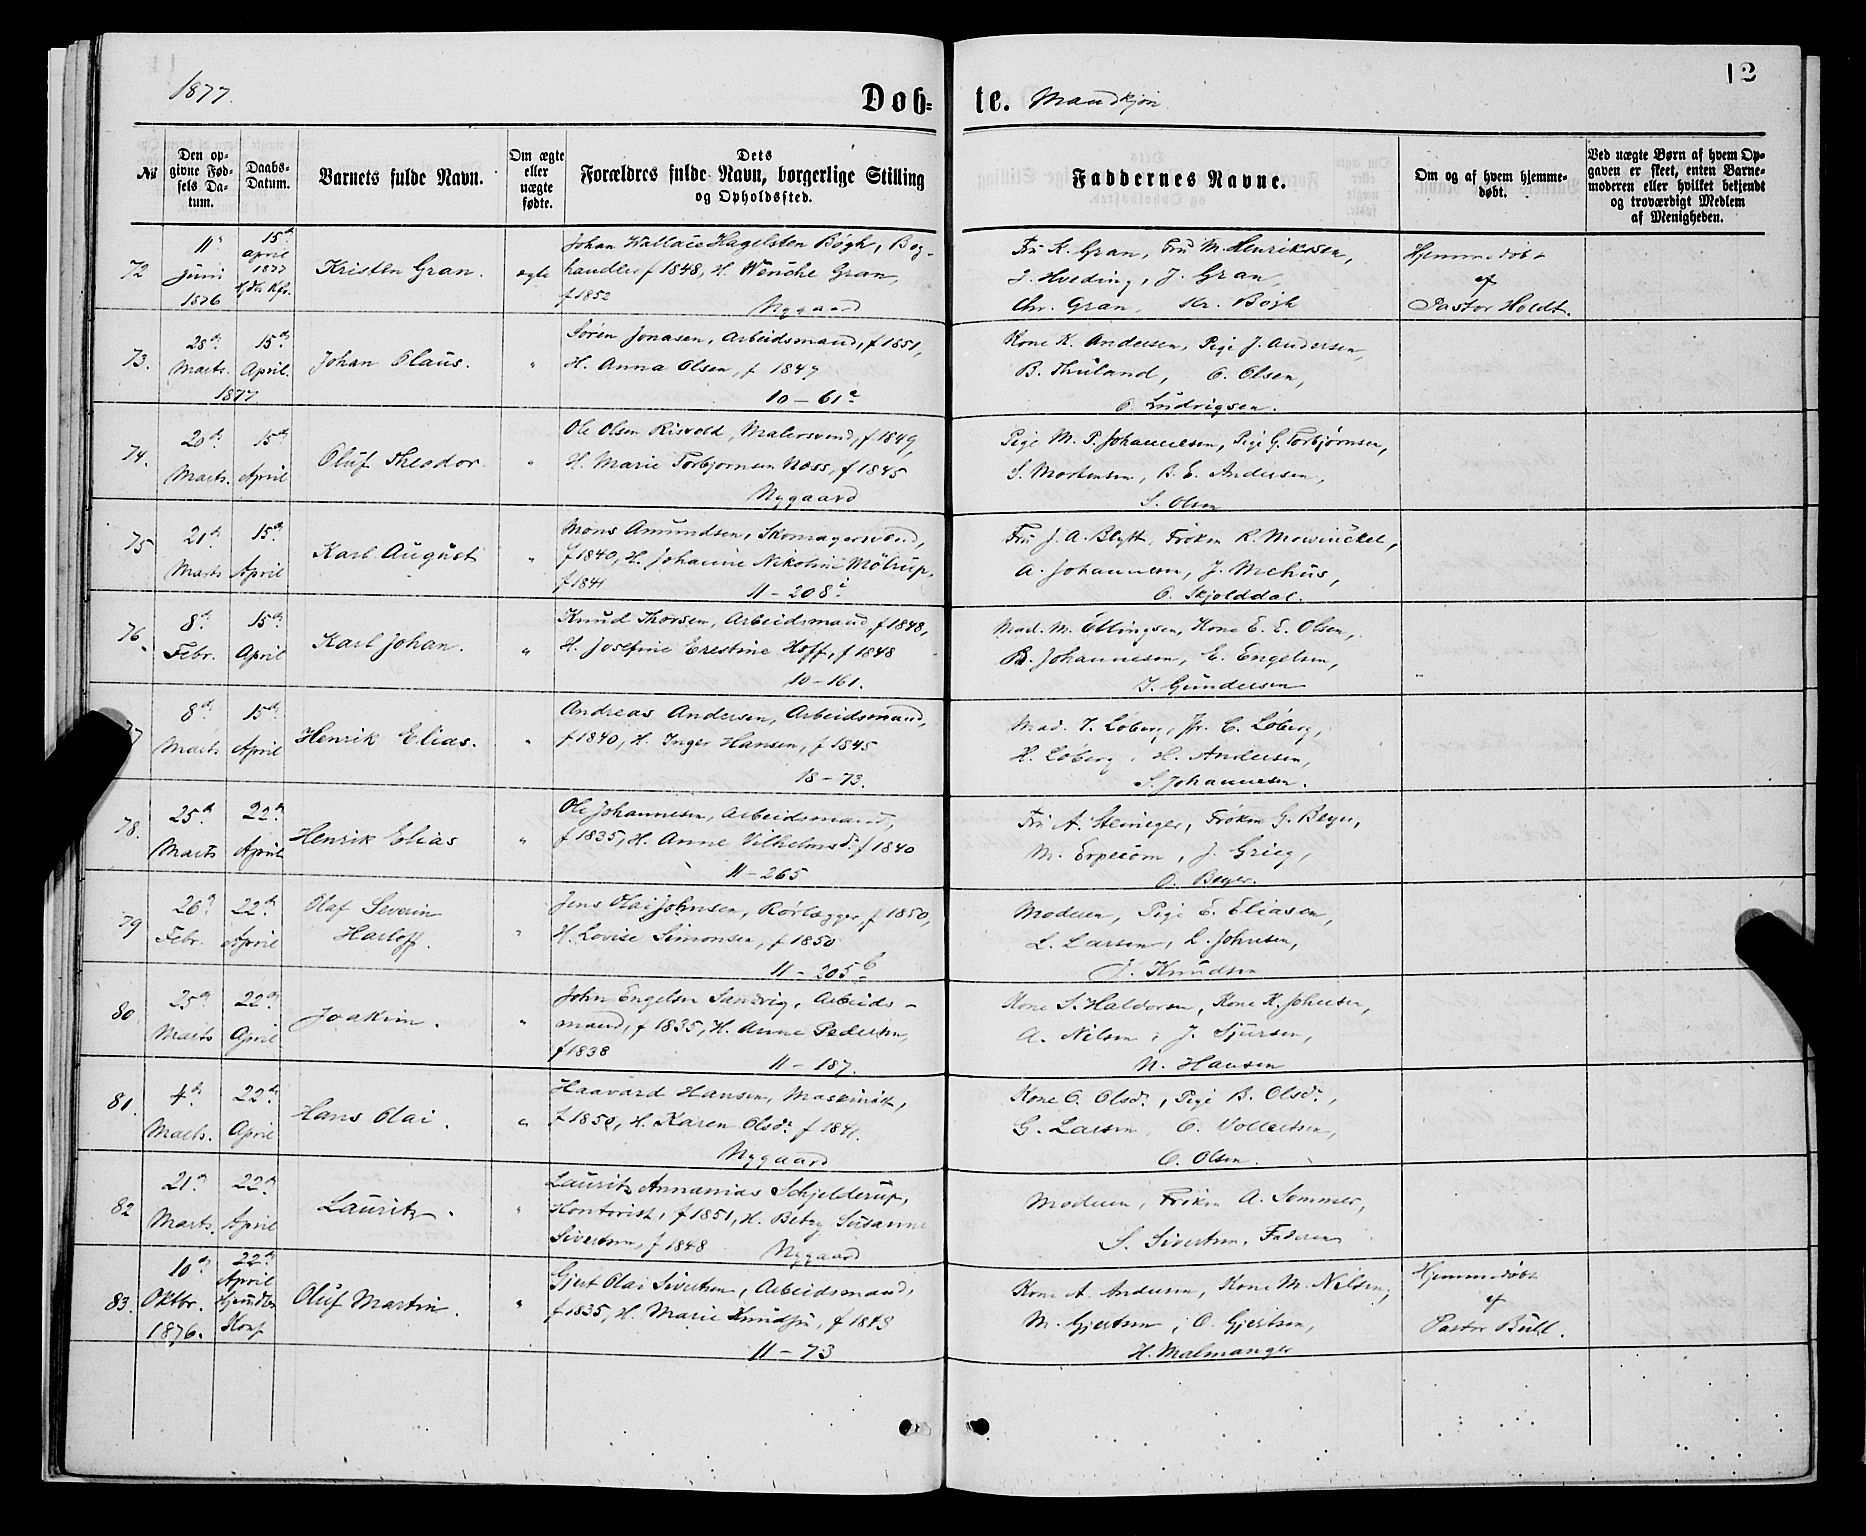 1877.
Døb-
te. Mandkjøn
12
№
Den op-
givne Fød-
sels Da-
tum.
Daabs-
Datum.
Barnets fulde Navn.
Om ægte
eller
uægte
fødte.
Dets
Forældres fulde Navn, borgerlige Stilling
og Opholdssted.
Faddernes Navne.
Om og af hvem hjemme-
døbt.
Ved uægte Børn af hvem Op-
gaven er skeet, enten Barne-
moderen eller hvilket bekjendt
og troværdigt Medlem
af Menigheden.
72
11
Juni
1876
15de
April
1877
Kristen Gran.
ægte
Johan Wallace Hagelsten Bøgh, Bog-
handler f 1848, H. Wenche Gran,
f 1852
Nygaard
Fru K. Gran, Fru M. Henriksen,
J. Gran,
Chr. Gran, Kr. Bøgh
Hjemmedøbt
af
Pastor Holdt.
73.
28de
Marts.
15de
April.
1877
Johan Olaus.
"
Søren Jonasen, Arbeidsmand, f 1851,
H. Anna Olsen, f 1847
10 – 61a
Kone K. Andersen, Pige J. Andersen,
B. Thuland, O. Olsen,
O. Ludvigsen.
74.
20de
Marts.
15de
April
Oluf Theodor
"
Ole Olsen Risvold, Malersvend, f 1849,
H. Marie Torbjørnsen Næss, f 1845
Nygaard
Pige M. P. Johannesen, Pige G. Torbjørnsen,
S. Mortensen, B. E. Andersen,
S. Olsen
75
21de
Marts
15de
April
Karl August
"
Mons Amundsen, Skomagersvend,
f 1840, H. Johanne Nikoline Møltrup,
f 1841
11 – 208i
Fru J. A. Blytt, Frøken R. Mowinckel,
A. Johannesen, J. Mehus,
O. Skjolddal.
76.
8de
Febr.
15de
April
Karl Johan.
"
Knud Thorsen, Arbeidsmand, f 1848,
H. Josefine Erestine Hoff, f 1848
10 – 161.
Mad. M. Ellingsen, Kone E. E. Olsen,
B. Johannesen, E. Engelsen,
I. Gundersen
8de
Marts
15de
April
Henrik Elias.
"
Andreas Andersen, Arbeidsmand,
f 1840, H. Inger Hansen, f 1845
18 – 73.
Mad. I. Løberg, Jfr. C. Løberg,
H. Løberg, H. Andersen,
S. Johannesen.
78.
25de
Marts
22de
April
Henrik Elias
"
Ole Johannesen, Arbeidsmand,
f 1835, H. Anne Vilhelmsdr. f 1840
11 – 265
Fru A. Steineger, Frøken G. Beyer,
M. Erpecom, J. Grieg,
O. Beyer.
79
26de
Febr.
22de
April
Olaf Severin
Harloff.
"
Jens Olai Johnsen, Rørlægger, f 1850,
H. Lovise Simonsen, f 1850
11 – 205b
Moderen, Pige E. Eliasen,
L. Larsen, L. Johnsen,
J. Knudsen
80
25de
Marts
22de
April
Joakim.
"
John Engelsen Sandvig, Arbeids-
mand, f 1835, H. Anne Pedersen,
f 1838
11 – 187.
Kone S. Haldorsen, Kone K. Johnsen,
A. Nilsen, J. Sjursen,
N. Hansen
81.
4de
Marts.
22de
April
Hans Olai.
"
Haavard Hansen, Maskinist,
f 1850, H. Karen Olsdr. f 1841.
Nygaard
Kone O. Olsdr., Pige B. Olsdr.,
G. Larsen, O. Vollertsen,
O. Olsen.
82
21de
Marts.
22de
April
Lauritz.
"
Lauritz Annanias Schjelderup,
Kontorist, f 1851, H. Betzy Susanne
Sivertsen, f 1848 Nygaard
Moderen, Frøken A. Sommer,
S. Sivertsen, Faderen
83.
10de
Oktbr.
1876.
22de
April
Oluf Martin.
"
Gjert Olai Sivertsen, Arbeidsmand,
f 1835, H. Marie Knudsen, f 1843
11 – 73
Kone A. Andersen, Kone M. Nilsen,
M. Gjertsen, O. Gjertsen,
H. Malmanger
Hjemmedøbt
af
Pastor Bull.